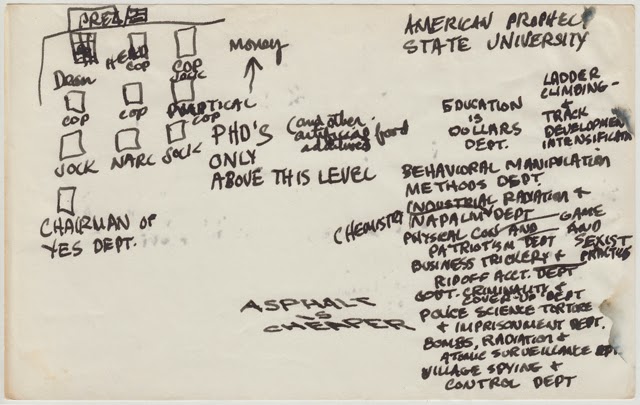 PREZ
Dean
HEAD COP
COP JOCK
Money
COP
COP
POLITICAL COP
JOCK
NARC
JOCK
PHD'S
ONLY
ABOVE THIS LEVEL
(and other
artificial food
additives
CHAIRMAN OF
YES DEPT.
ASPHALT
IS
CHEAPER
AMERICAN PROPHECY
STATE UNIVERSITY
EDUCATION
IS
DOLLARS
DEPT.
LADDER
CLIMBING -
&
TRACK
DEVELOPMENT
INTENSIFICATION
BEHAVIORAL MANIPULATION
METHODS DEPT.
INDUSTRIAL RADIATION &
CHEMISTRY NAPALM DEPT
PHYSICAL CON AND GAME
PATRIOTISM DEPT AND
BUSINESS TRICKERY & SEXIST
RIPOFF ACCT. DEPT PRACTICES
GOVT. CRIMINALITY &
COVER-UP DEPT
POLICE SCIENCE TORTURE
& IMPRISONMENT DEPT.
BOMBS, RADIATION &
ATOMIC SURVEILLANCE DPT.
VILLAGE SPYING &
CONTROL DEPT